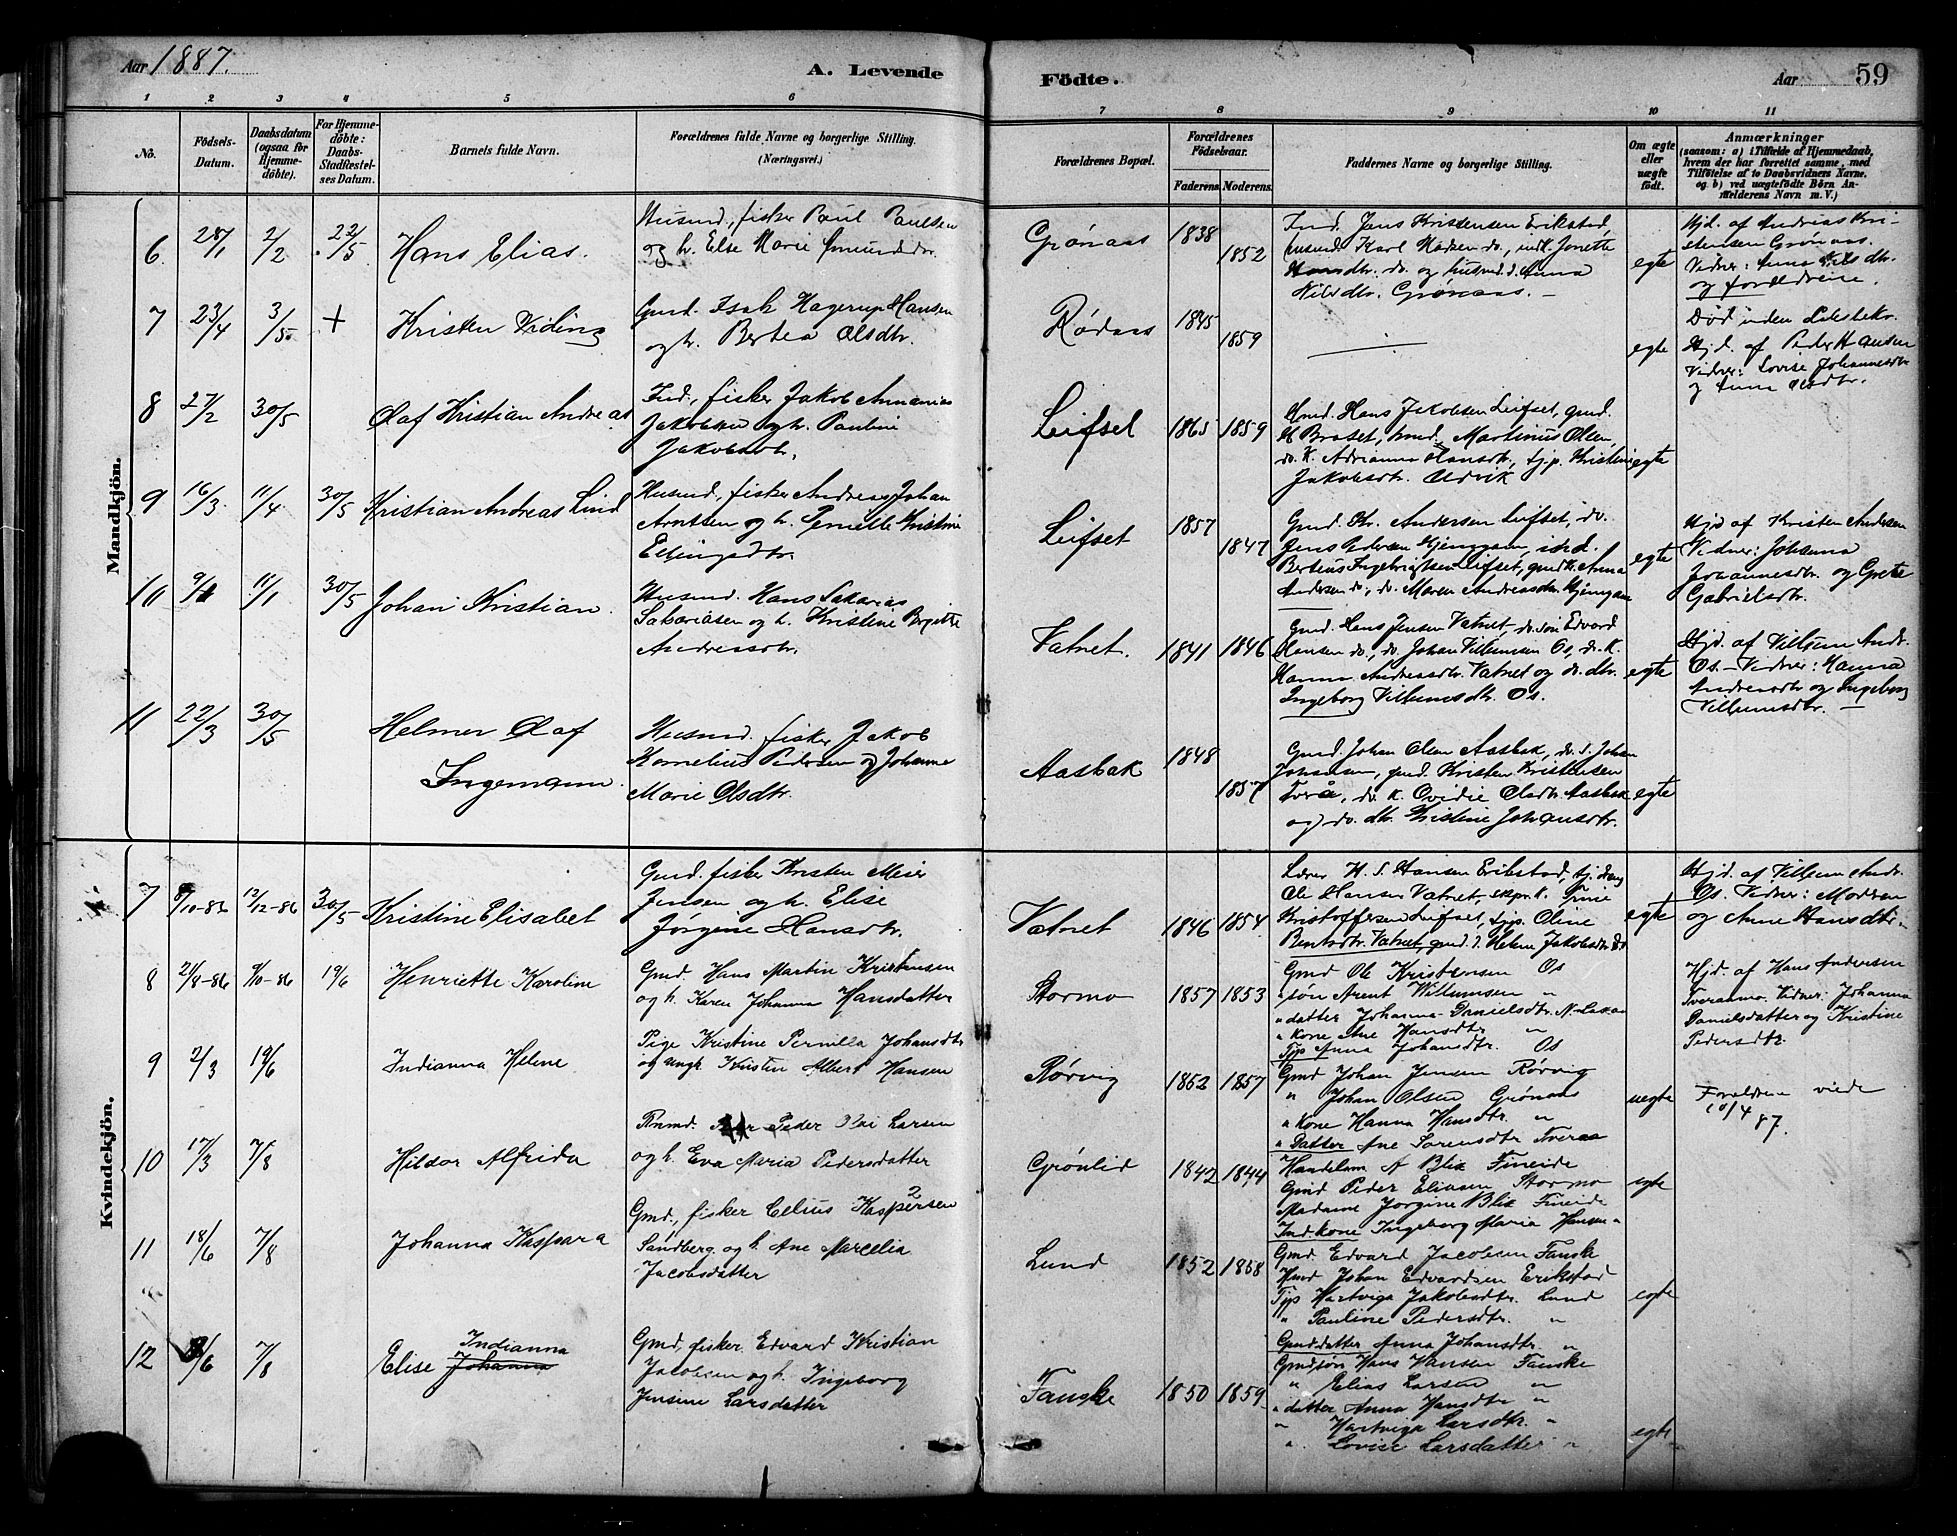 Aar 1887.
A. Levende
Födte.
Aar
59
1 2 3 4 5 6 7 8 9 10 11
No.
Födsels-
Datum.
Daabsdatum
(ogsaa for
Hjemme-
döbte).
For Hjemme-
döbte:
Daabs-
Stadfæstel-
ses Datum.
Barnets fulde Navn.
Forældrenes fulde Navne og borgerlige Stilling.
(Næringsvei.)
Forældrenes Bopæl.
Forældrenes
Födselsaar.
Faderens. Moderens.
Faddernes Navne og borgerlige Stilling.
Om ægte
eller
uægte
födt.
Anmærkninger
(saasom: a) i Tilfælde af Hjemmedaab,
hvem der har forrettet samme, med
Tilföielse af to Daabsvidners Navne,
og b) ved uægtefödte Börn An-
melderens Navn m. V.)
Mandkjön.
6 28/1 2/2 22/5 Hans Elias.
Husmd., fisker Paul Paulsen
og h. Else Marie Amundsdr.
Grönaas 1838 1852
Ind. Jens Kristensen Erikstad,
husmd. Karl Madsen do, indk. Jonette
Hansdtr. do og husmd. d. Anna
Nilsdtr. Grönaas. —
egte
Hjd. af Andreas Kri-
stensen Grönaas.
Vidner: Anna Nilsdtr.
og forældrene.
7 23/4 3/5 + Kristen Viding
Gmd. Isak Hagerup Hansen
og h. Bertea Olsdtr.
Rödaas 1845 1859
egte
Död uden Stadfestelse
Hjd. af Peder Hansen
Vidner: Lovise Johannesdtr
og Anna Olsdtr.
8 27/2 30/5 Olaf Kristian Andreas
Ind., fisker Jakob Annanias
Jakobsen og h. Pauline
Jakobsdtr.
Leifset 1865 1859
Gmd. Hans Jakobsen Leifset, gmd.
Braset, hmd. Martinus Olsen,
do. K. Adrianna Hansdtr., tj.p. Kristine
Jakobsdtr. Alvik
egte
9 16/3 11/4 30/5 Kristian Andreas Lind
Husmd, fisker Andreas Johan
Arntsen og h. Pernelle Kristine
Ellingsdtr.
Leifset 1857 1847
Gmd. Kr. Andersen Leifset, do.
Jens Pedersen Hjemgam, ind.
Bertens Ingebrigtsen Leifset, gmdk. Anna
Andersen do, do. Maren Andreasdtr Hjemgam
egte
Hjd af Kristen Andersen
Vidner: Johanna
Johannesdtr. og Grete
Gabrielsdtr.
10 9/1 11/1 30/5 Johan Kristian.
Husmd. Hans Sakarias
Sakariasen og h. Kristine Birgitte
Andreasdtr.
Vatnet. 1841 1846
Gmd. Hans Jensen Vatnet, do. sön Edvard
Hansen do., do. Johan Villumsen Os, do. K.
Hanna Andreasdtr. Vatnet og do. dtr.
Ingeborg Villumsdtr. Os.
egte
Hjd. af Villum Andr.
Os. — Vidner: Hanna
Andreasdtr og Ingeborg
Villumsdtr. —
11 22/3 30/5 Helmer Olaf
Ingemann.
Husmd. fisker Jakob
Kornelius Pedersen og Johanna
Marie Olsdtr.
Aasbak 1848 1857
Gmd. Johan Olsen Aasbak, do. s. Johan
Johansen, gmd. Kristen Kristensen
Tverå, do. K. Ovidie Olsdtr. Aasbak
og do. dtr. Kristine Johansdtr.
egte
Kvindekjön.
7 8/10-86 12/12-86 30/5 Kristine Elisabet
Gmd. fisker Kristen Meier
Jensen og h. Elise
Jörgine Hansdtr.
Vatnet 1846 1854
Lærer H. S. Hansen Erikstad, tj. dreng
Ole Hansen Vatnet, skpr. k. Trine
Kristoffersen Leifset, tjp. Oline
Bentsdtr. Vatnet, gmd. d. Helene Jakobsdtr
egte
Hjd. af Villum Andr.
Os. Vidner: Morten
og Anne Hansdtr.
8 21/8-86 9/10-86 19/6 Henriette Karoline
Gmd. Hans Martin Kristensen
og h. Karen Johanna Hansdatter
Stormo 1857 1853
Gmd Ole Kristensen Os
" sön Arent Willumsen "
" datter Johanna Danielsdtr.
" Kone Ane Hansdtr "
Tjp Anna Johansdtr. Os
Hjd. af Hans Andersen
Tveraamo. Vidner: Johanna
Danielsdatter og Kristine
Pedersdtr.
9 2/3 19/6 Indianna Helene
Pige Kristine Pernilla Johansdtr
og ungk. Kristen Albert Hansen
Rörvig 1862 1857
Gmd Johan Jensen Rörvig
" Johan Olsen Grönaas
" Kone Hanna Hansdtr. "
" Datter Ane Sorensdtr Tveraa
uegte
Foreldrene viede
10/4 87.
10 17/3 7/8 Hildor Alfrida
Peder Olai Larsen
og h. Eva Maria Pedersdatter
Grönlid 1842 1844
Handelsm A Blix Fineide
Gmd Peder Eliasen Stormo
Madame Jorgine Blix Fineide
Ind.kone Ingeborg Maria Hansen "
egte
11 18/6 7/8 Johanna Kaspara
Gmd., fisker Celius Kaspersen
Sandberg og h. Ane Marcelia
Jacobsdatter
Lund 1852 1858
Gmd Edvard Jacobsen Fauske
Hmd Johan Edvardsen Erikstad
Tjp Hartviga Jakobsdtr. Lund
" Pauline Pedersdtr. "
Gmdsdatter Anna Johansdtr. "
egte
12 8/6 7/8 Elise Johanna Indianna
Gmd, fisker Edvard Kristian
Jacobsen og h. Ingeborg
Jensine Larsdatter
Fauske 1850 1859
Gmdsön Hans Hansen Fauske
" Elias Larsen "
" datter Anna Hansdtr "
" Hartviga Larsdtr. "
" Lovise Larsdatter "
egte